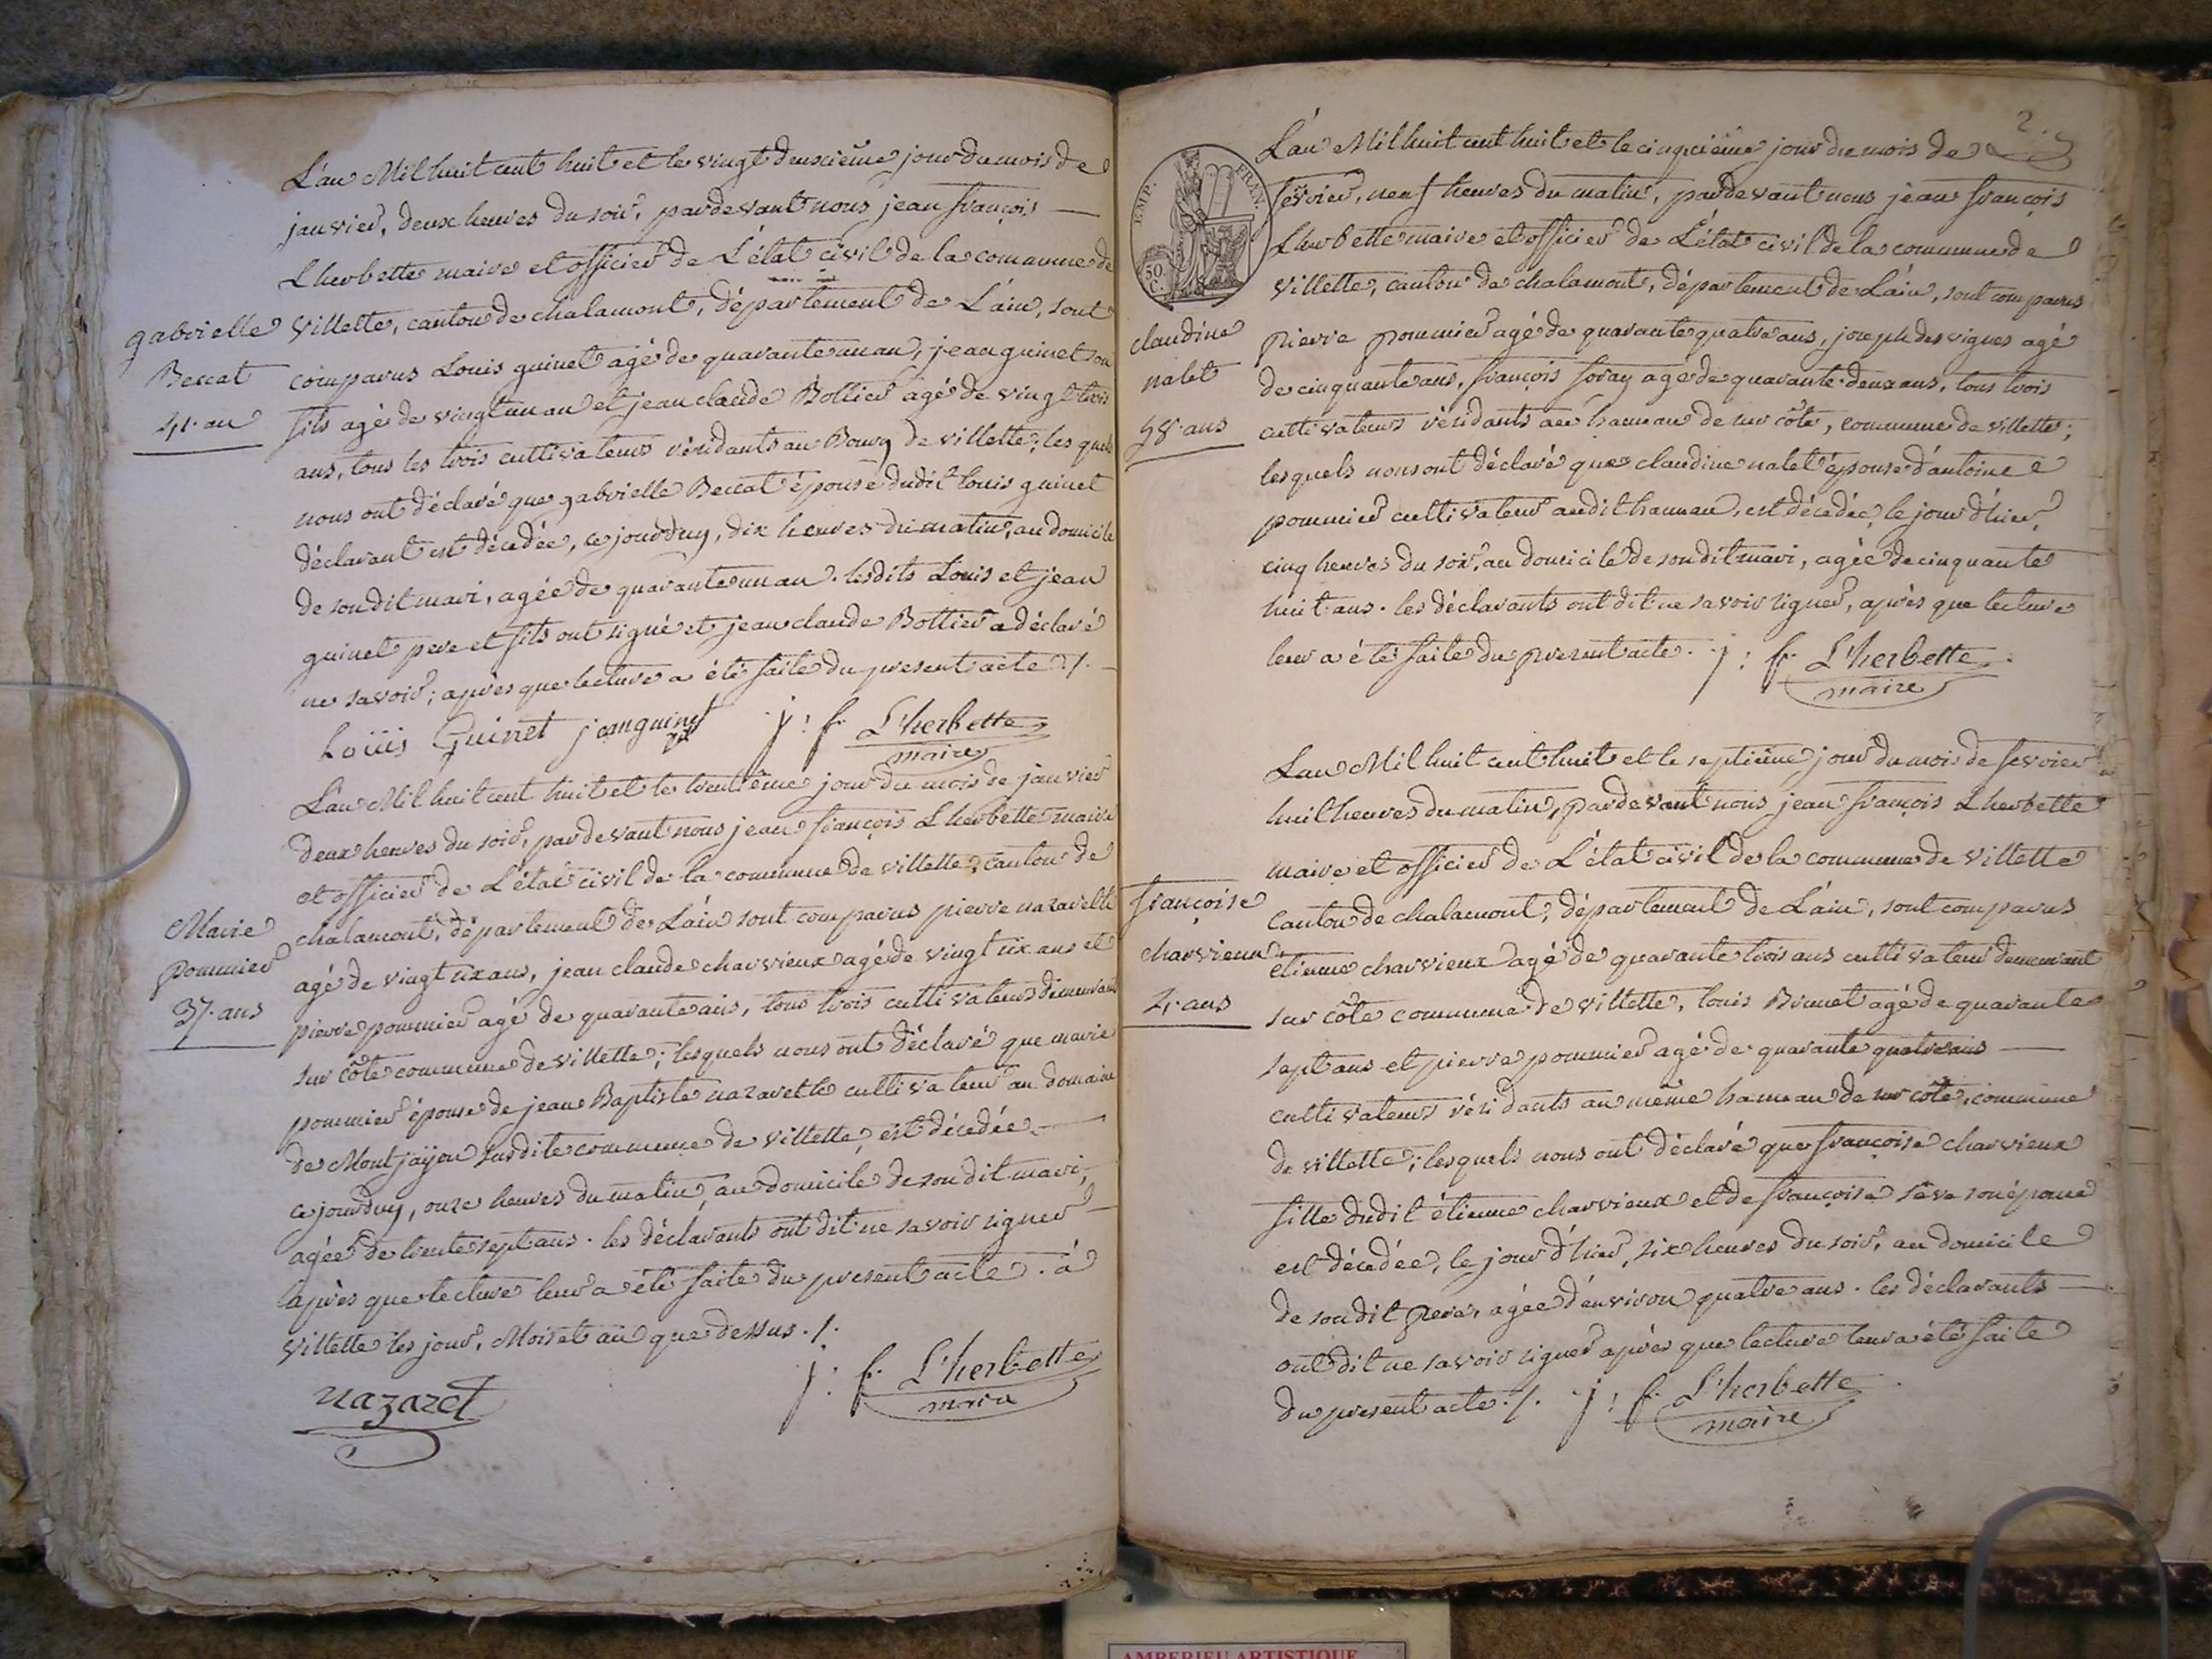 L'an Mil huit cent huit et le vingt deuxième jour du mois de
janvier, deux heures du soir, pardevant nous jean françois
Lherbette maire et officier de L'état civil de la commune de
gabrielle
Beccat
41. an
villette, canton de chalamont, département de L'ain, sont
comparus Louis guinet agé de quarante un an, jean guinet son
fils agé de vingt un an et jean claude Bottier agé de vingt trois
ans, tous les trois cultivateurs résidants au Bourg de villette; les quels
nous ont déclaré que gabrielle Beccat épouse dudit louis guinet
déclarant est décedée, ce jourd'uy, dix heures du matin, au domicile
de son dit mari, agée de quarante un an. lesdits Louis et jean
guinet pere et fils ont signé et jean claude Bottier a déclaré
ne savoir; après que lecture a été faite du present acte ./.
Loüis Guinet jean guinet j: f. L'herbette
maire
L'an Mil huit cent huit et le trentième jour du mois de janvier
deux heures du soir, pardevant nous jean françois Lherbette maire
et officier de L'état civil de la commune de villette, canton de
Marie
pommier
37. ans
chalamont, département de L'ain sont comparus pierre nazareth
agé de vingt six ans, jean claude charvieux agé de vingt six ans et
pierre pommier agé de quarante ans, tous trois cultivateurs demeurant
sur côte commune de villette; lesquels nous ont déclaré que marie
pommier épouse de jean Baptiste nazareth cultivateur au domaine
de Montjayon susdite commune de villette, est décedée
ce jourd'uy, onze heures du matin, au domicile de son dit mari,
agée de trente sept ans. les déclarants ont dit ne savoir signer
après que lecture leur a été faite du present acte. à
villette les jour, Mois et an que dessus ./.
nazaret j: f. L'herbette
maire
2.
EMP. FRAN.
50 C.
L'an Mil huit cent huit et le cinquième jour du mois de
fevrier, neuf heures du matin, pardevant nous jean françois
Lherbette maire et officier de L'état civil de la commune de
villette, canton de chalamont, département de L'ain, sont comparus
claudine
nalet
58. ans
pierre pommier agé de quarante quatre ans, joseph desvignes agé
de cinquante ans, françois foray agé de quarante deux ans, tous trois
cultivateurs résidants au hameau de sur côte, commune de villette;
lesquels nous ont déclaré que claudine nalet épouse d'antoine
pommier cultivateur audit hameau, est décedée, le jour d'hier,
cinq heures du soir, au domicile de son dit mari, agée de cinquante
huit ans. les déclarants ont dit ne savoir signer, après que lecture
leur a été faite du present acte. j: f. L'herbette
maire
L'an Mil huit cent huit et le septième jour du mois de fevrier
huit heures du matin, pardevant nous jean françois Lherbette
maire et officier de L'état civil de la commune de villette
françoise
charvieux
4. ans
canton de chalamont, département de L'ain, sont comparus
etienne charvieux agé de quarante trois ans cultivateur demeurant
sur côte commune de villette, louis Brunet agé de quarante
sept ans et pierre pommier agé de quarante quatre ans
cultivateurs résidants au même hameau de sur côte, commune
de villette; lesquels nous ont déclaré que françoise charvieux
fille dudit étienne charvieux et de françoise sève son épouse
est décedée, le jour d'hier, six heures du soir, au domicile
de son dit pere, agée d'environ quatre ans. les déclarants
ont dit ne savoir signer après que lecture leur a été faite
du present acte ./. j: f. L'herbette
maire
AMBERIEU ARTISTIQUE